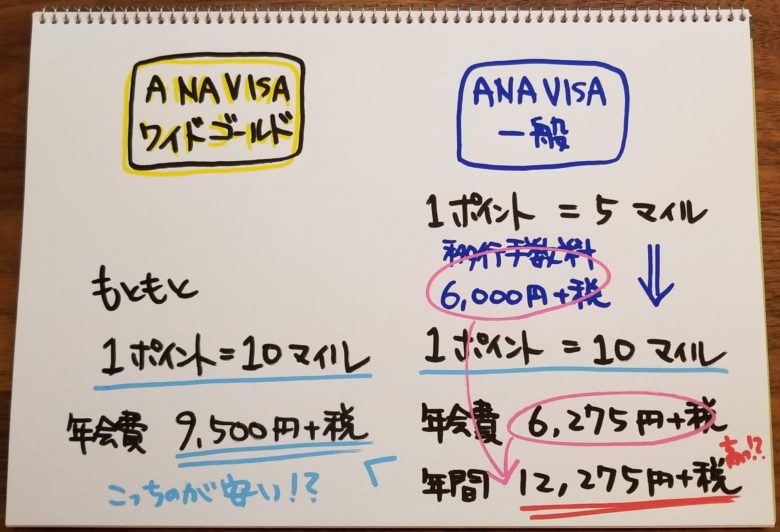 ANA VISA
ワイドゴールド
もともと
1ポイント=10マイル
年会費 9,500円+税
こっちのが安い!?
ANA VISA
一般
1ポイント = 5 マイル
移行手数料
6,000円+税
1ポイント = 10マイル
年会費 6,275円+税
高っ!?
年間 12,275円+税